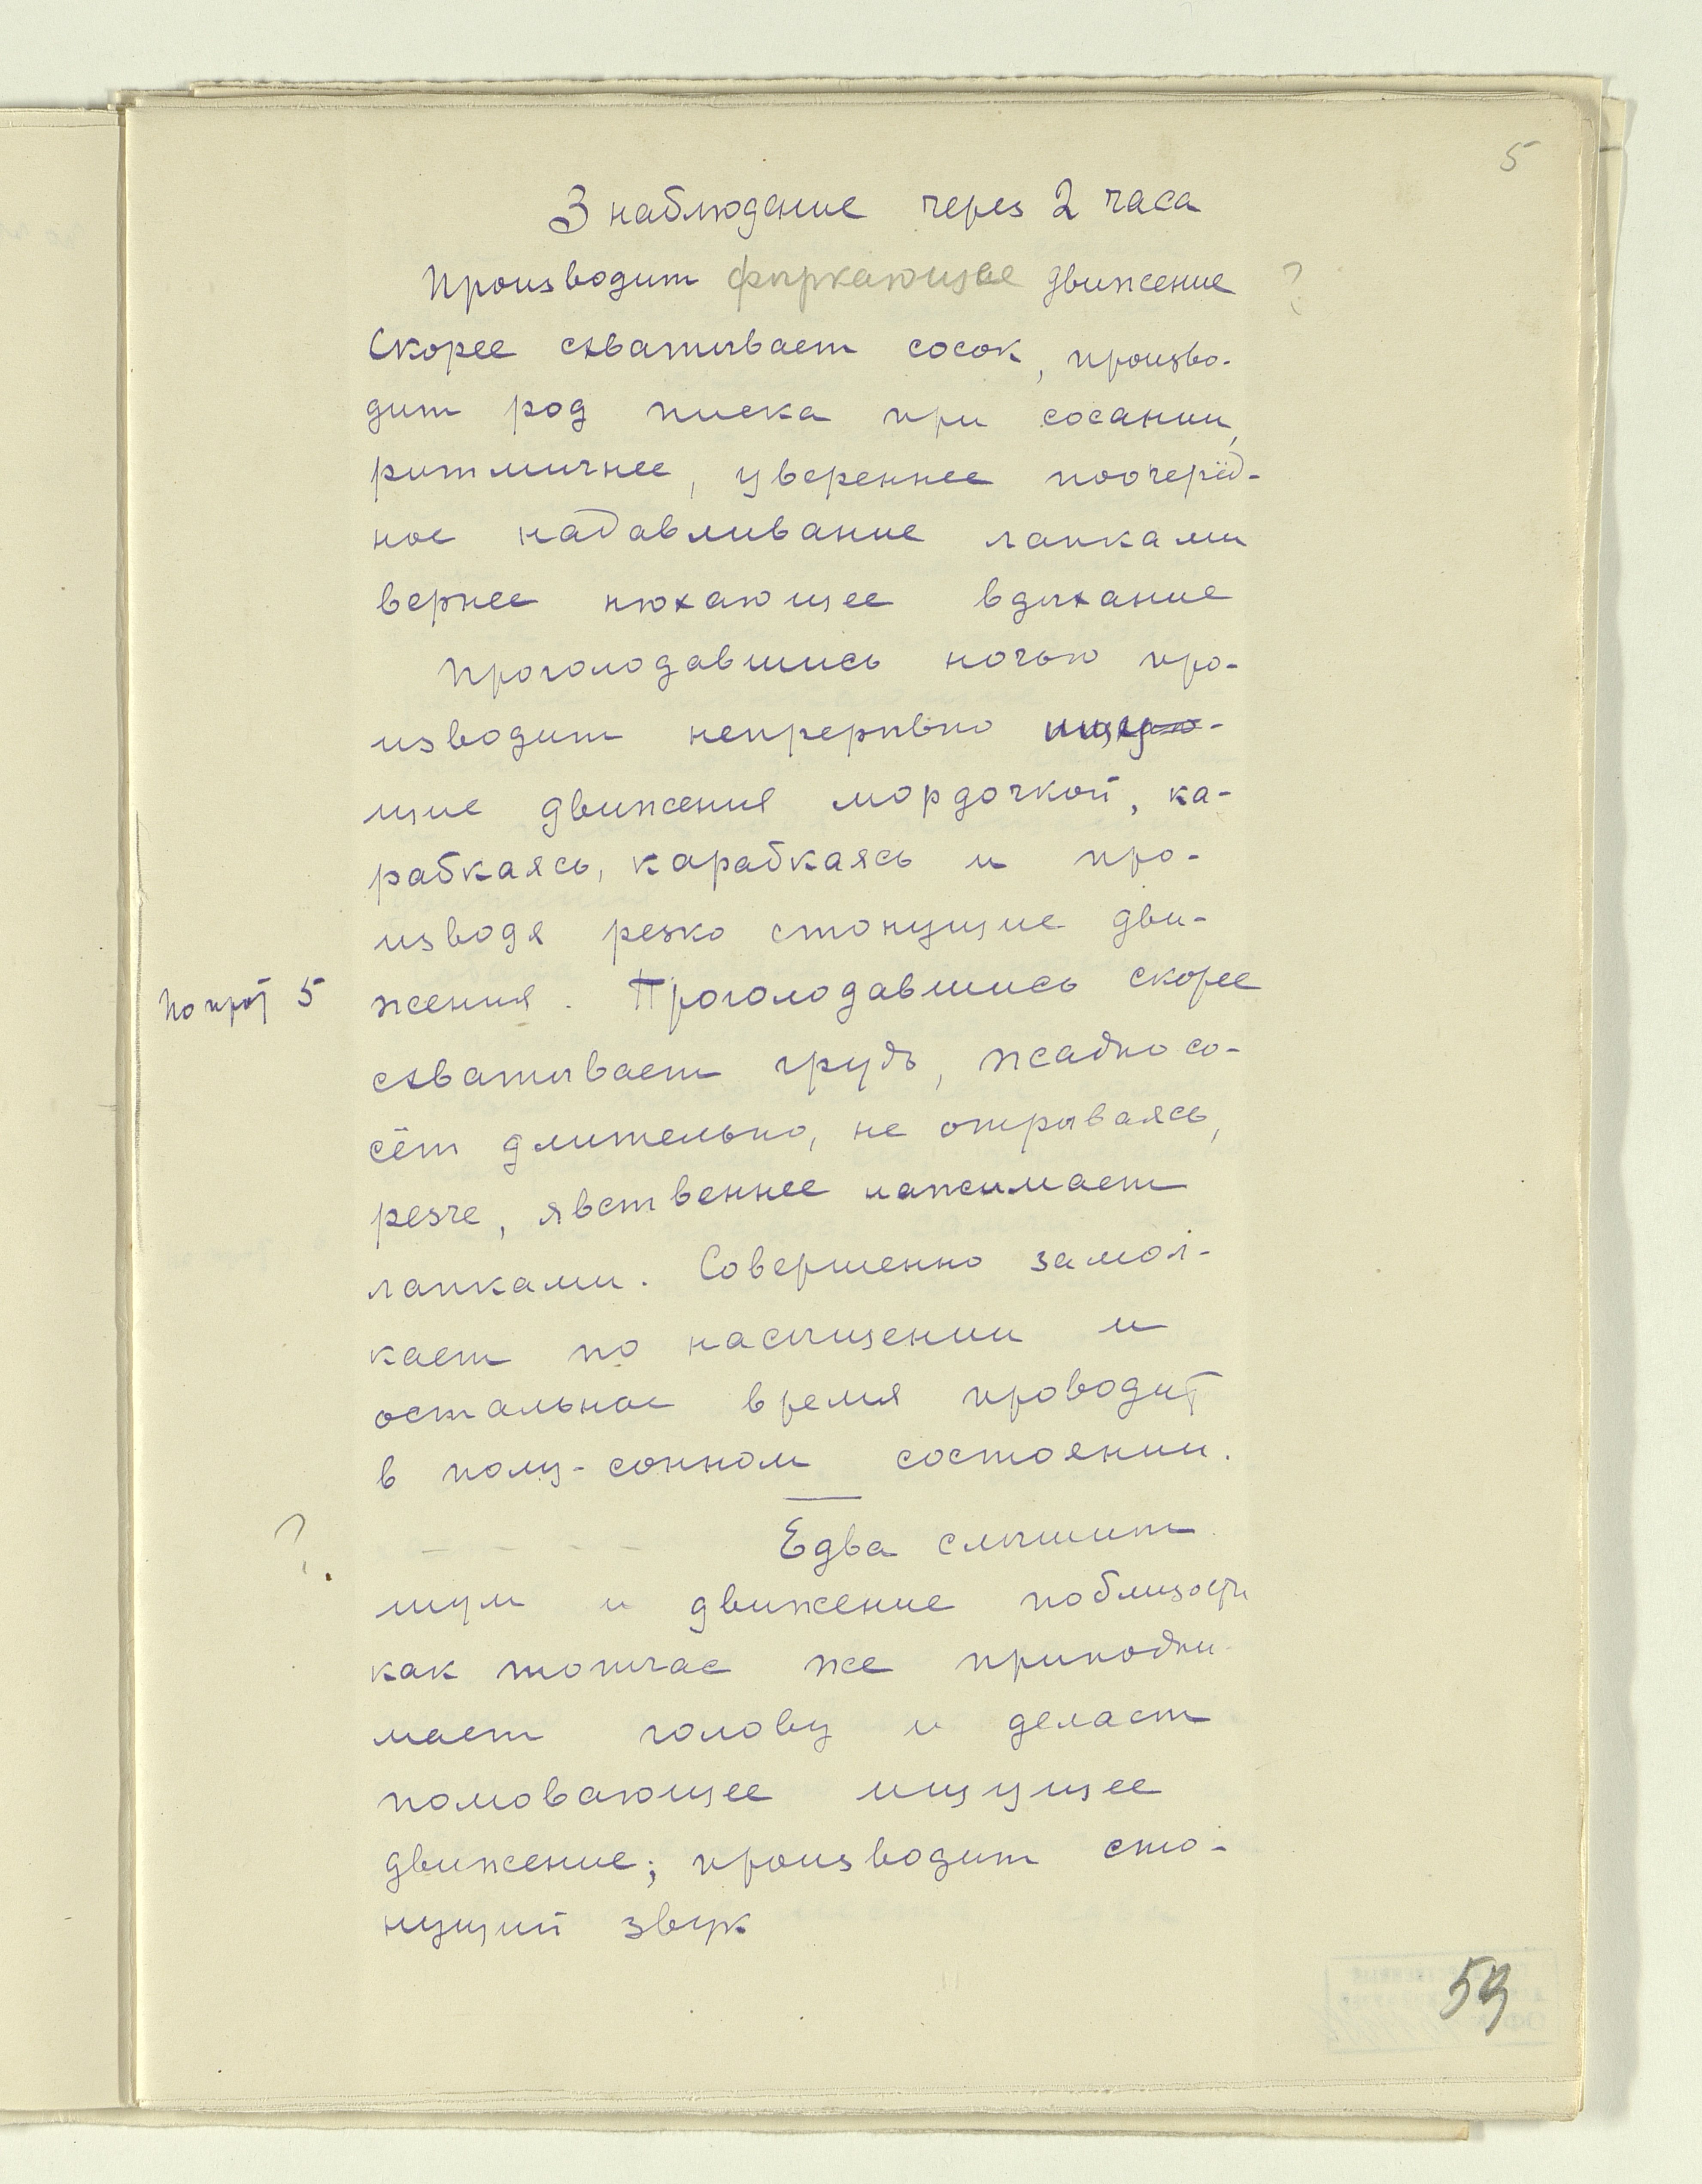 5
3 наблюдение через 2 часа
Производит фыркающее движение ?
Скорее схватывает сосок, произво-
дит род писка при сосании,
ритмичнее, увереннее поочерёд-
ное надавливание лапками
вернее нюхающее вдыхание
Проголодавшись ночью про-
изводит непрерывно ищу-
щие движения мордочкой, ка-
рабкаясь, карабкаясь и про-
изводя резко стонущие дви-
жения. Проголодавшись скорее
схватывает грудь, жадно со-
сёт длительно, не отрываясь,
резче, явственнее нажимает
лапками. Совершенно замол-
кает по насыщении и
остальное время проводит
в полу-сонном состоянии.
? Едва слышит
шум и движение поблизости
как тотчас же приподни-
мает голову и делает
ищущее
движение; производит сто-
нущий звук
59